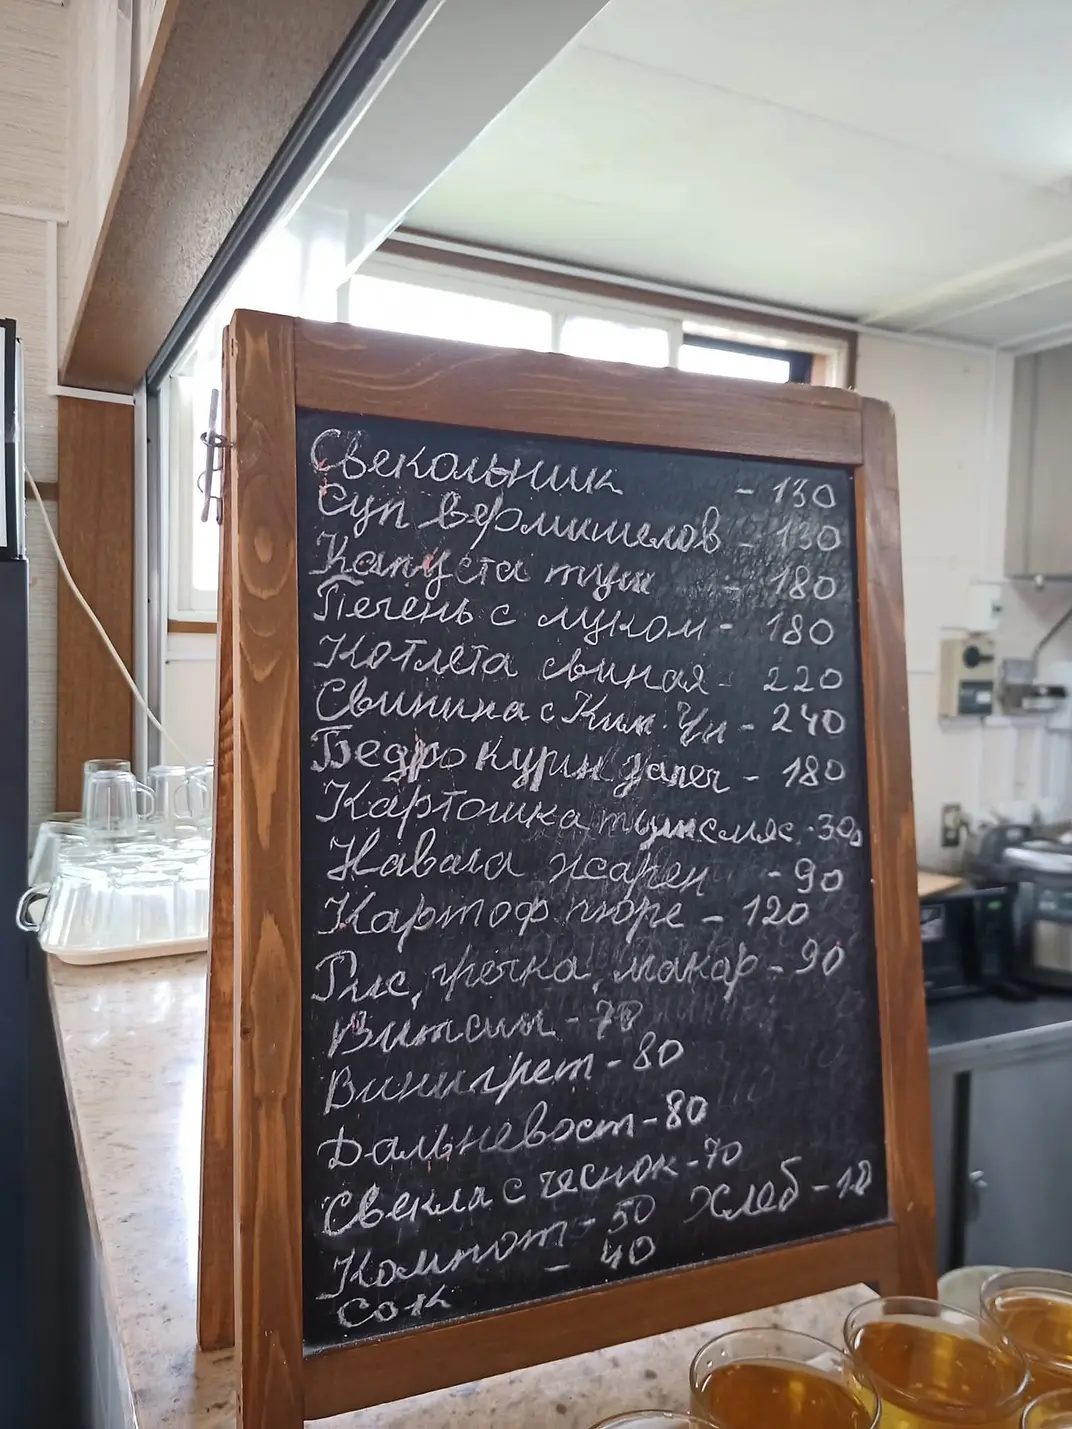 Свекольник - 130
Суп вермишелов - 130
Капуста туш - 180
Печень с луком - 180
Котлета свиная - 220
Свинина с Ким. Чи - 240
Бедро курин запеч - 180
Картошка туш с мяс. 300
Навага жарен - 90
Картоф пюре - 120
Рис, гречка, макар - 90
- 70
Винигрет - 80
Дальневост - 80
Свекла с чеснок - 70
Компот - 50 Хлеб - 10
Сок - 40